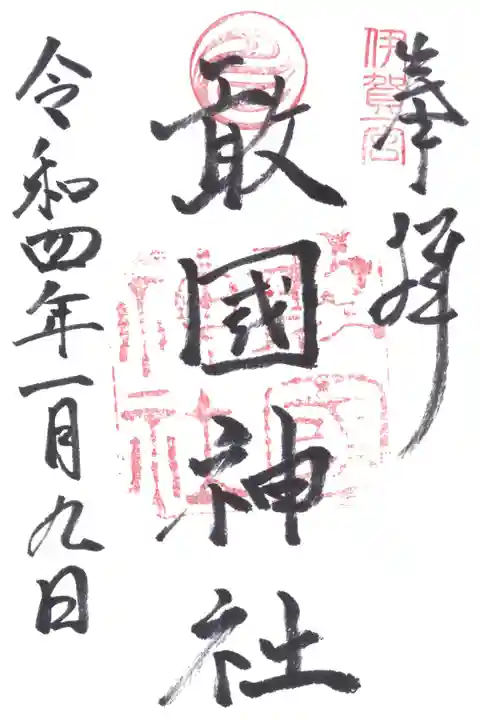 奉拝
伊賀一宮
敢國神社
令和四年一月九日